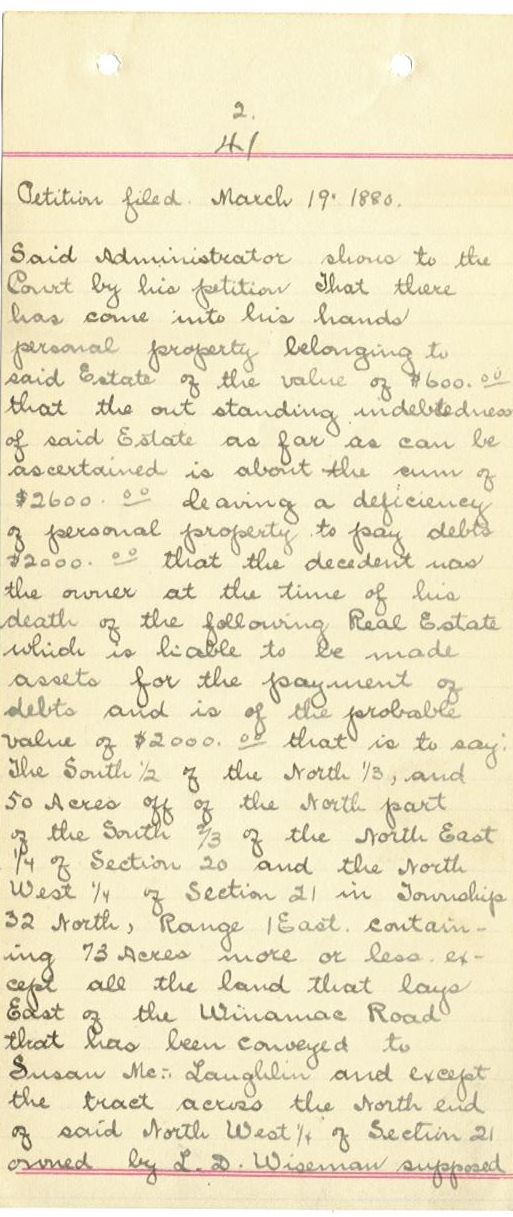 2.
41
Petition filed. March 19. 1880.
Said Administrator shows to the
Court by his petition That there
has come into his hands
personal property belonging to
said Estate of the value of $600.00
that the out standing indebtedness
of said Estate as far as can be
ascertained is about the cum of
$2600.00 leaving a deficiency
of personal property to pay debts
$2000.00 that the decedent was
the owner at the time of his
death of the following Real Estate
which is liable to be made
assets for the payment of
debts and is of the probable
value of $2000.00 that is to say:
The South 1/2 of the North 1/3, and
50 Acres off of the North part
of the South 2/3 of the North East
1/4 of Section 20 and the North
West 1/4 of Section 21 in Township
32 North, Range 1 East. contain-
ing 73 Acres more or less. ex-
cept all the land that lays
East of the Winamac Road
that has been conveyed to
Susan Mc Laughlin and except
the tract across the North end
of said North West 1/4 of Section 21
owned by L. D. Wiseman supposed